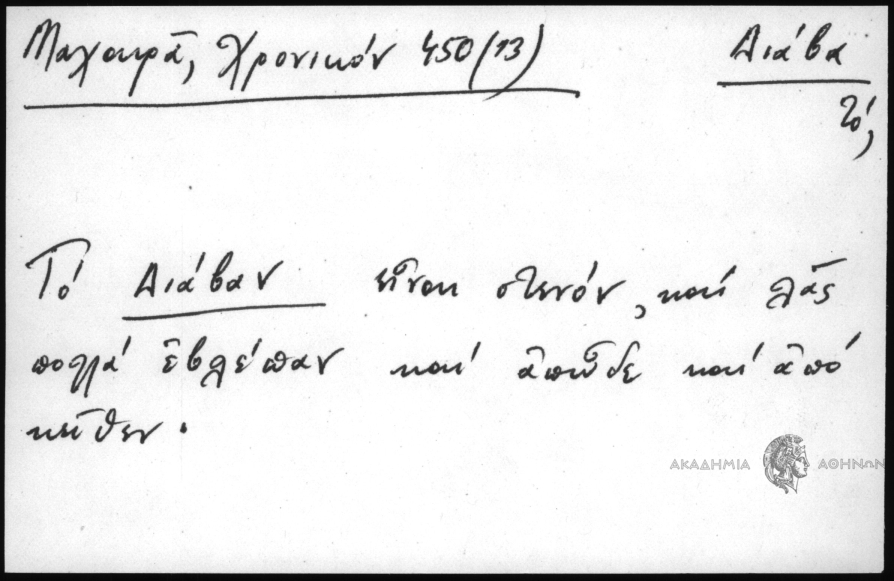 Μαχαιρᾶ, Χρονικόν 450(13)
Διάβα
τό,
Τό Διάβαν εἶναι στενόν, καί λᾶς
πολλά ἔβλεπαν καί ἀπῶδε καί ἀπό
κεῖθεν.
ΑΚΑΔΗΜΙΑ ΑΘΗΝΩΝ